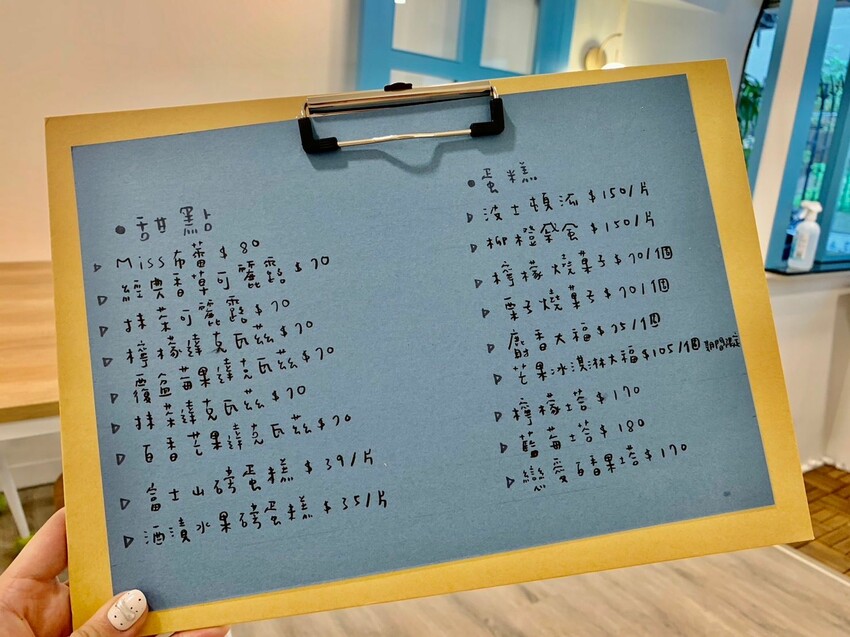 ●甜點
▷ Miss布蕾 $80
▷ 經典香草可麗露 $70
▷ 抹茶可麗露 $70
▷ 檸檬達克瓦茲 $70
▷ 覆盆莓果達克瓦茲 $70
▷ 抹茶達克瓦茲 $70
▷ 百香芒果達克瓦茲 $70
▷ 富士山磅蛋糕 $39/片
▷ 酒漬水果磅蛋糕 $35/片
●蛋糕
▷ 波士頓派 $150/片
▷ 柳橙 $150/片
▷ 檸檬燒菓子 $70/個
▷ 栗子燒菓子 $70/個
▷ 麝香大福 $75/個
▷ 芒果冰淇淋大福 $105/個 期間限定
▷ 檸檬塔 $170
▷ 藍莓塔 $180
▷ 戀愛百香果塔 $170